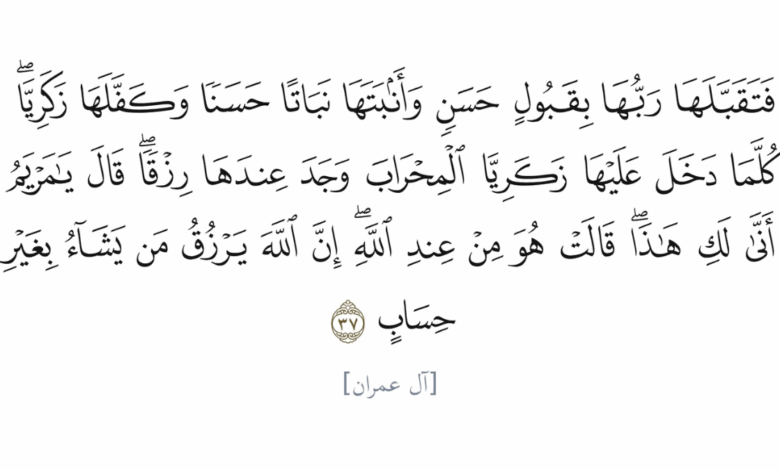 فَتَقَبَّلَهَا رَبُّهَا بِقَبُولٍ حَسَنٖ وَأَنۢبَتَهَا نَبَاتًا حَسَنٗا وَكَفَّلَهَا زَكَرِيَّاۖ
كُلَّمَا دَخَلَ عَلَيۡهَا زَكَرِيَّا ٱلۡمِحۡرَابَ وَجَدَ عِندَهَا رِزۡقٗاۖ قَالَ يَٰمَرۡيَمُ
أَنَّىٰ لَكِ هَٰذَاۖ قَالَتۡ هُوَ مِنۡ عِندِ ٱللَّهِۖ إِنَّ ٱللَّهَ يَرۡزُقُ مَن يَشَآءُ بِغَيۡرِ
حِسَابٍ ٣٧
[آل عمران]